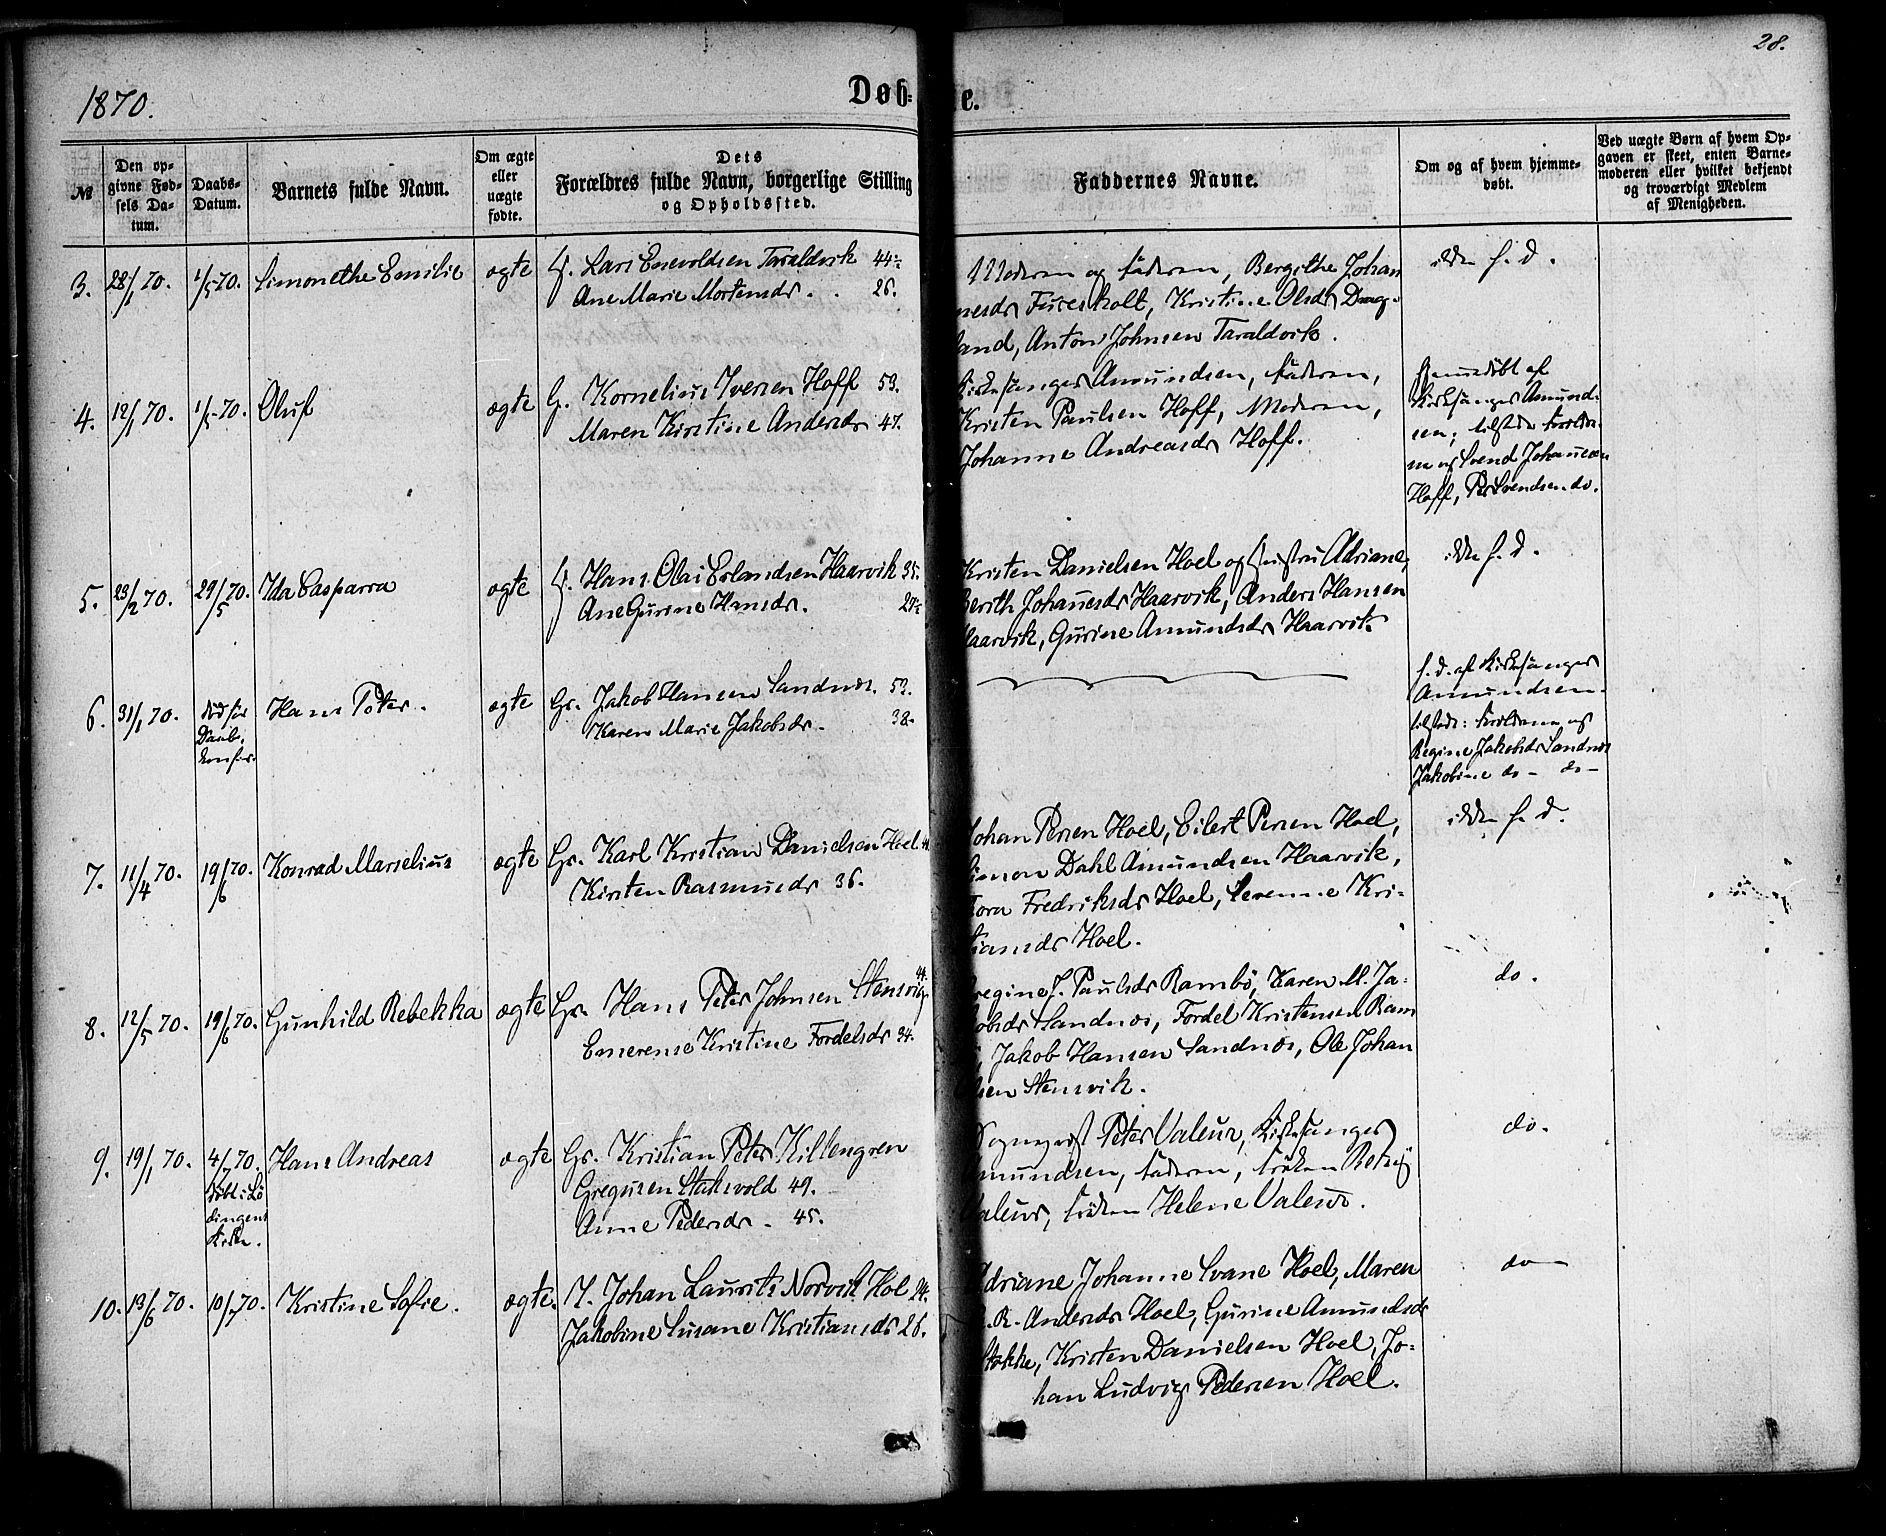 28.
1870.
Døb-
te.
№
Den op-
givne Fød-
sels Da-
tum.
Daabs-
Datum.
Barnets fulde Navn.
Om ægte
eller
uægte
fødte.
Dets
Forældres fulde Navn, borgerlige Stilling
og Opholdssted.
Faddernes Navne.
Om og af hvem hjemme-
døbt.
Ved uægte Børn af hvem Op-
gaven er skeet, enten Barne-
moderen eller hvilket bekjendt
og troværdigt Medlem
af Menigheden.
3. 28/1 70. 1/5 70. Simonethe Emilie ægte Lars Enevoldsen Taraldvik 44
Ane Marie Mortensdr. 26.
Moderen og faderen, Bergithe Johan
nesdr Fureskolt, Kristine Olsdr Drag-
land, Anton Johnsen Taraldvik.
ikke h. d.
4. 12/1 70. 1/5 70. Oluf ægte G. Kornelius Iversen Hoff 53.
Maren Kirstine Andersdr 47.
Kirkesanger Amundsen, faderen,
Kristen Paulsen Hoff, Moderen,
Johanne Andreasdr Hoff.
hjemmedöbt af
Kirkesanger Amund-
sen; tilstede forældre-
ne og Svend Johannesen
Hoff, Per Svendsen do.
5. 23/2 70. 29/5 70. Ida Casparra ægte Hans Olai Erlandsen Haarvik 35.
Ane Gurine Hansdr. 29
Kristen Danielsen Hoel og hustru Adriane,
Berith Johannesdr Haarvik, Anders Hansen
Haarvik, Gurine Amundsdr Haarvik
ikke h. d.
6. 31/1 70. död för
Daab.
Hans Peter. ægte Gr. Jakob Hansen Sandnes. 53.
Karen Marie Jakobsdr. 38.
h. d. af Kirkesanger
Amundsen.
tilstede: forældrene og
Regine Jakobsdr Sandnes
Jakobine do - do -
7. 11/4 70. 19/6 70. Konrad Marselius ægte Gr. Karl Kristian Danielsen Hoel
Kirsten Rasmusdr 36.
Johan Persen Hoel, Eilert Persen Hoel,
Simon Dahl Amundsen Haarvik,
Fredriksdr Hoel, Serenne Kri-
stiansdr Hoel.
ikke h. d.
8. 12/5 70. 19/6 70. Gunhild Rebekka ægte Gr. Hans Peter Johnsen Stensvig 44.
Emerense Kristine Fordelsdr 34.
Regine J. Paulsdr Rambö, Karen M. Ja-
kobsdr Sandnes, Fordel Kristensen Ram
Jakob Hansen Sandnes, Ole Johan
Olsen Stensvik.
do.
9. 19/1 70. 4/7 70.
döbt i Lö
dingens
Kirke.
Hans Andreas ægte Gr. Kristian Peter Killengren
Gregusen Stakvold 49.
Anne Pedersdr. 45.
Sognepræst Peter Valeur, Kirkesanger
Amundsen, faderen, fröken Betsy
Valeur, fröken Helene Valeur.
do.
10. 13/6 70. 10/7 70. Kristine Sofie. ægte. I. Johan Laurits Norvik Hol 24.
Jakobine Susane Kristiansdr 26.
Adriane Johanne Svane Hoel, Maren
R. Andersdr Hoel, Gurine Amundsdr
Stokke, Kristen Danielsen Hoel, Jo-
han Ludvig Pedersen Hoel.
do